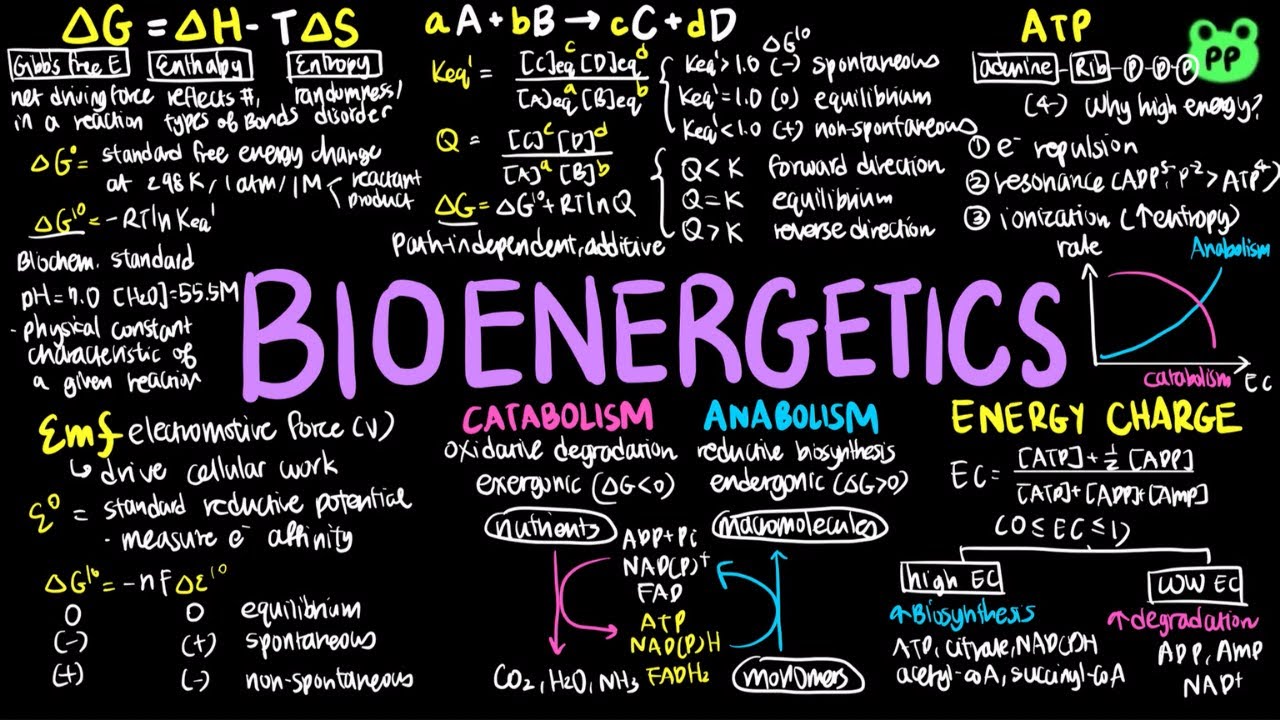 ΔG = ΔH - TΔS
Gibb's free E
Enthalpy
Entropy
net driving force
in a reaction
reflects #,
types of Bonds
randomness/
disorder
ΔG° = standard free energy change
at 298K/1atm/1M
reactant
product
ΔG'° = -RTln Keq'
Biochem. standard
pH = 7.0 [H2O] = 55.5M
- physical constant
characteristic of
a given reaction
aA + bB → cC + dD
Keq' = [C]eq^c [D]eq^d
[A]eq^a [B]eq^b
ΔG'°
Keq' > 1.0 (-) spontaneous
Keq' = 1.0 (0) equilibrium
Keq' < 1.0 (+) non-spontaneous
Q = [C]^c [D]^d
[A]^a [B]^b
Q < K forward direction
Q = K equilibrium
Q > K reverse direction
ΔG = ΔG'° + RTlnQ
Path-independent, additive
ATP
PP
adenine - Rib - P - P - P
(4-) Why high energy?
① e- repulsion
② resonance (ADP, P-2 > ATP4-)
③ ionization (↑entropy)
rate
Anabolism
Catabolism
EC
BIOENERGETICS
Emf electromotive force (V)
↳ drive cellular work
ε° = standard reductive potential
- measure e- affinity
ΔG'° = -nFΔε'°
0 0 equilibrium
(-) (+) spontaneous
(+) (-) non-spontaneous
CATABOLISM
oxidative degradation
exergonic (ΔG<0)
nutrients
ANABOLISM
reductive biosynthesis
endergonic (ΔG>0)
macromolecules
ADP + Pi
NAD(P)+
FAD
ATP
NAD(P)H
FADH2
CO2, H2O, NH3
monomers
ENERGY CHARGE
EC = [ATP] + ½ [ADP]
[ATP] + [ADP] + [AMP]
(0 ≤ EC ≤ 1)
high EC
↑Biosynthesis
ATP, citrate, NAD(P)H
acetyl-coA, succinyl-coA
LOW EC
↑degradation
ADP, AMP
NAD+